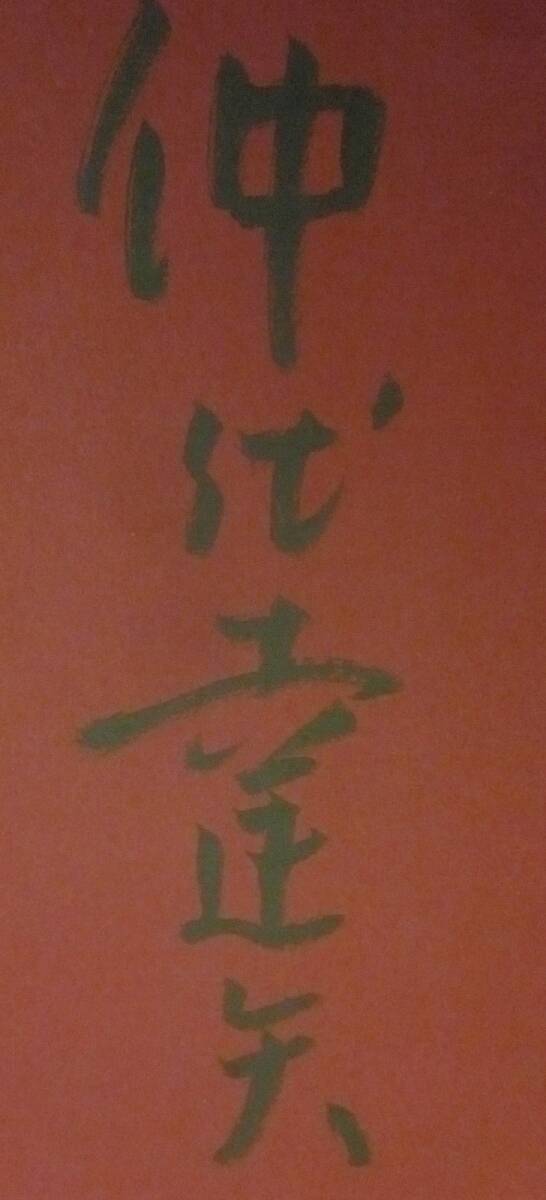 仲代達矢